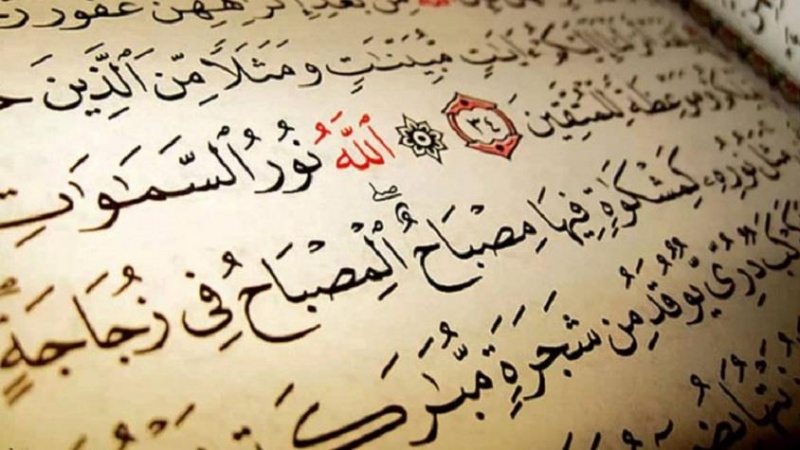 ٱللَّهِ مِنۢ بَعْدِ إِكْرَٰهِهِنَّ غَفُورٌ
إِلَيْكُمْ ءَايَٰتٍ مُّبَيِّنَٰتٍ وَمَثَلًا مِّنَ ٱلَّذِينَ
وَمَوْعِظَةً لِّلْمُتَّقِينَ ٣٤ ٱللَّهُ نُورُ ٱلسَّمَٰوَٰتِ
مَثَلُ نُورِهِۦ كَمِشْكَوٰةٍ فِيهَا مِصْبَاحٌ ۖ ٱلْمِصْبَاحُ فِى زُجَاجَةٍ
كَوْكَبٌ دُرِّىٌّ يُوقَدُ مِن شَجَرَةٍ مُّبَٰرَكَةٍ